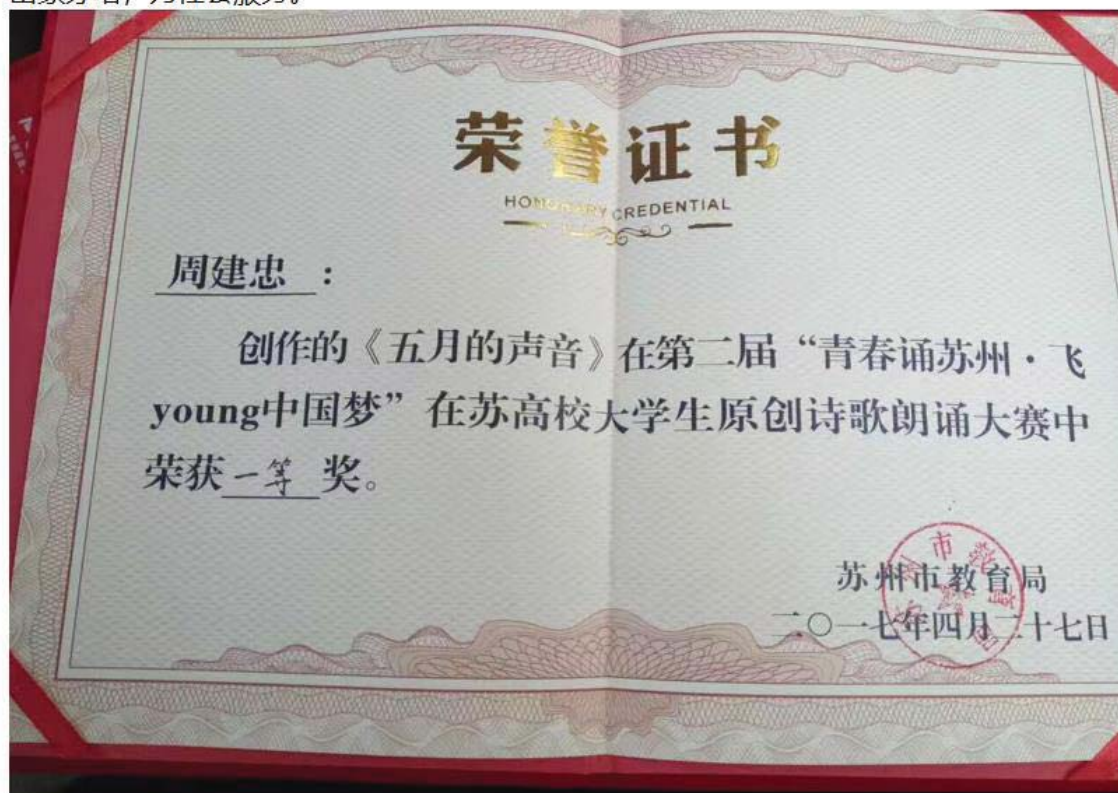 荣誉证书
HONORARY CREDENTIAL
周建忠：
创作的《五月的声音》在第二届“青春诵苏州·飞
young中国梦”在苏高校大学生原创诗歌朗诵大赛中
荣获一等奖。
苏州市教育局
二〇一七年四月二十七日
苏州市教育局